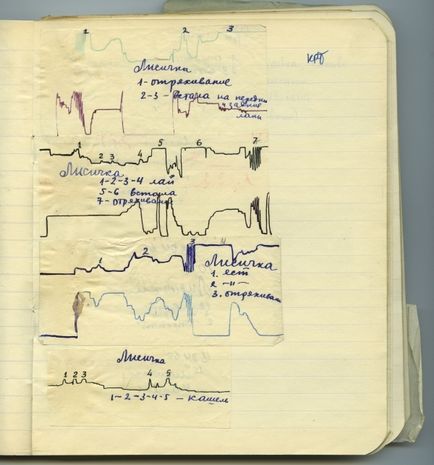 1 2 3
КРБ
Лисичка
1 - отряхивание
2-3 - Встала на передн
и задние
лапы
1 2 3 4 5 6 7
Лисичка
1-2-3-4 лай
5-6 встала
7- отряхивание
1 2 3 4
Лисичка
1. ест
2 -„-
3. отряхивает
Лисичка
1 2 3 4 5
1-2-3-4-5 - кашель